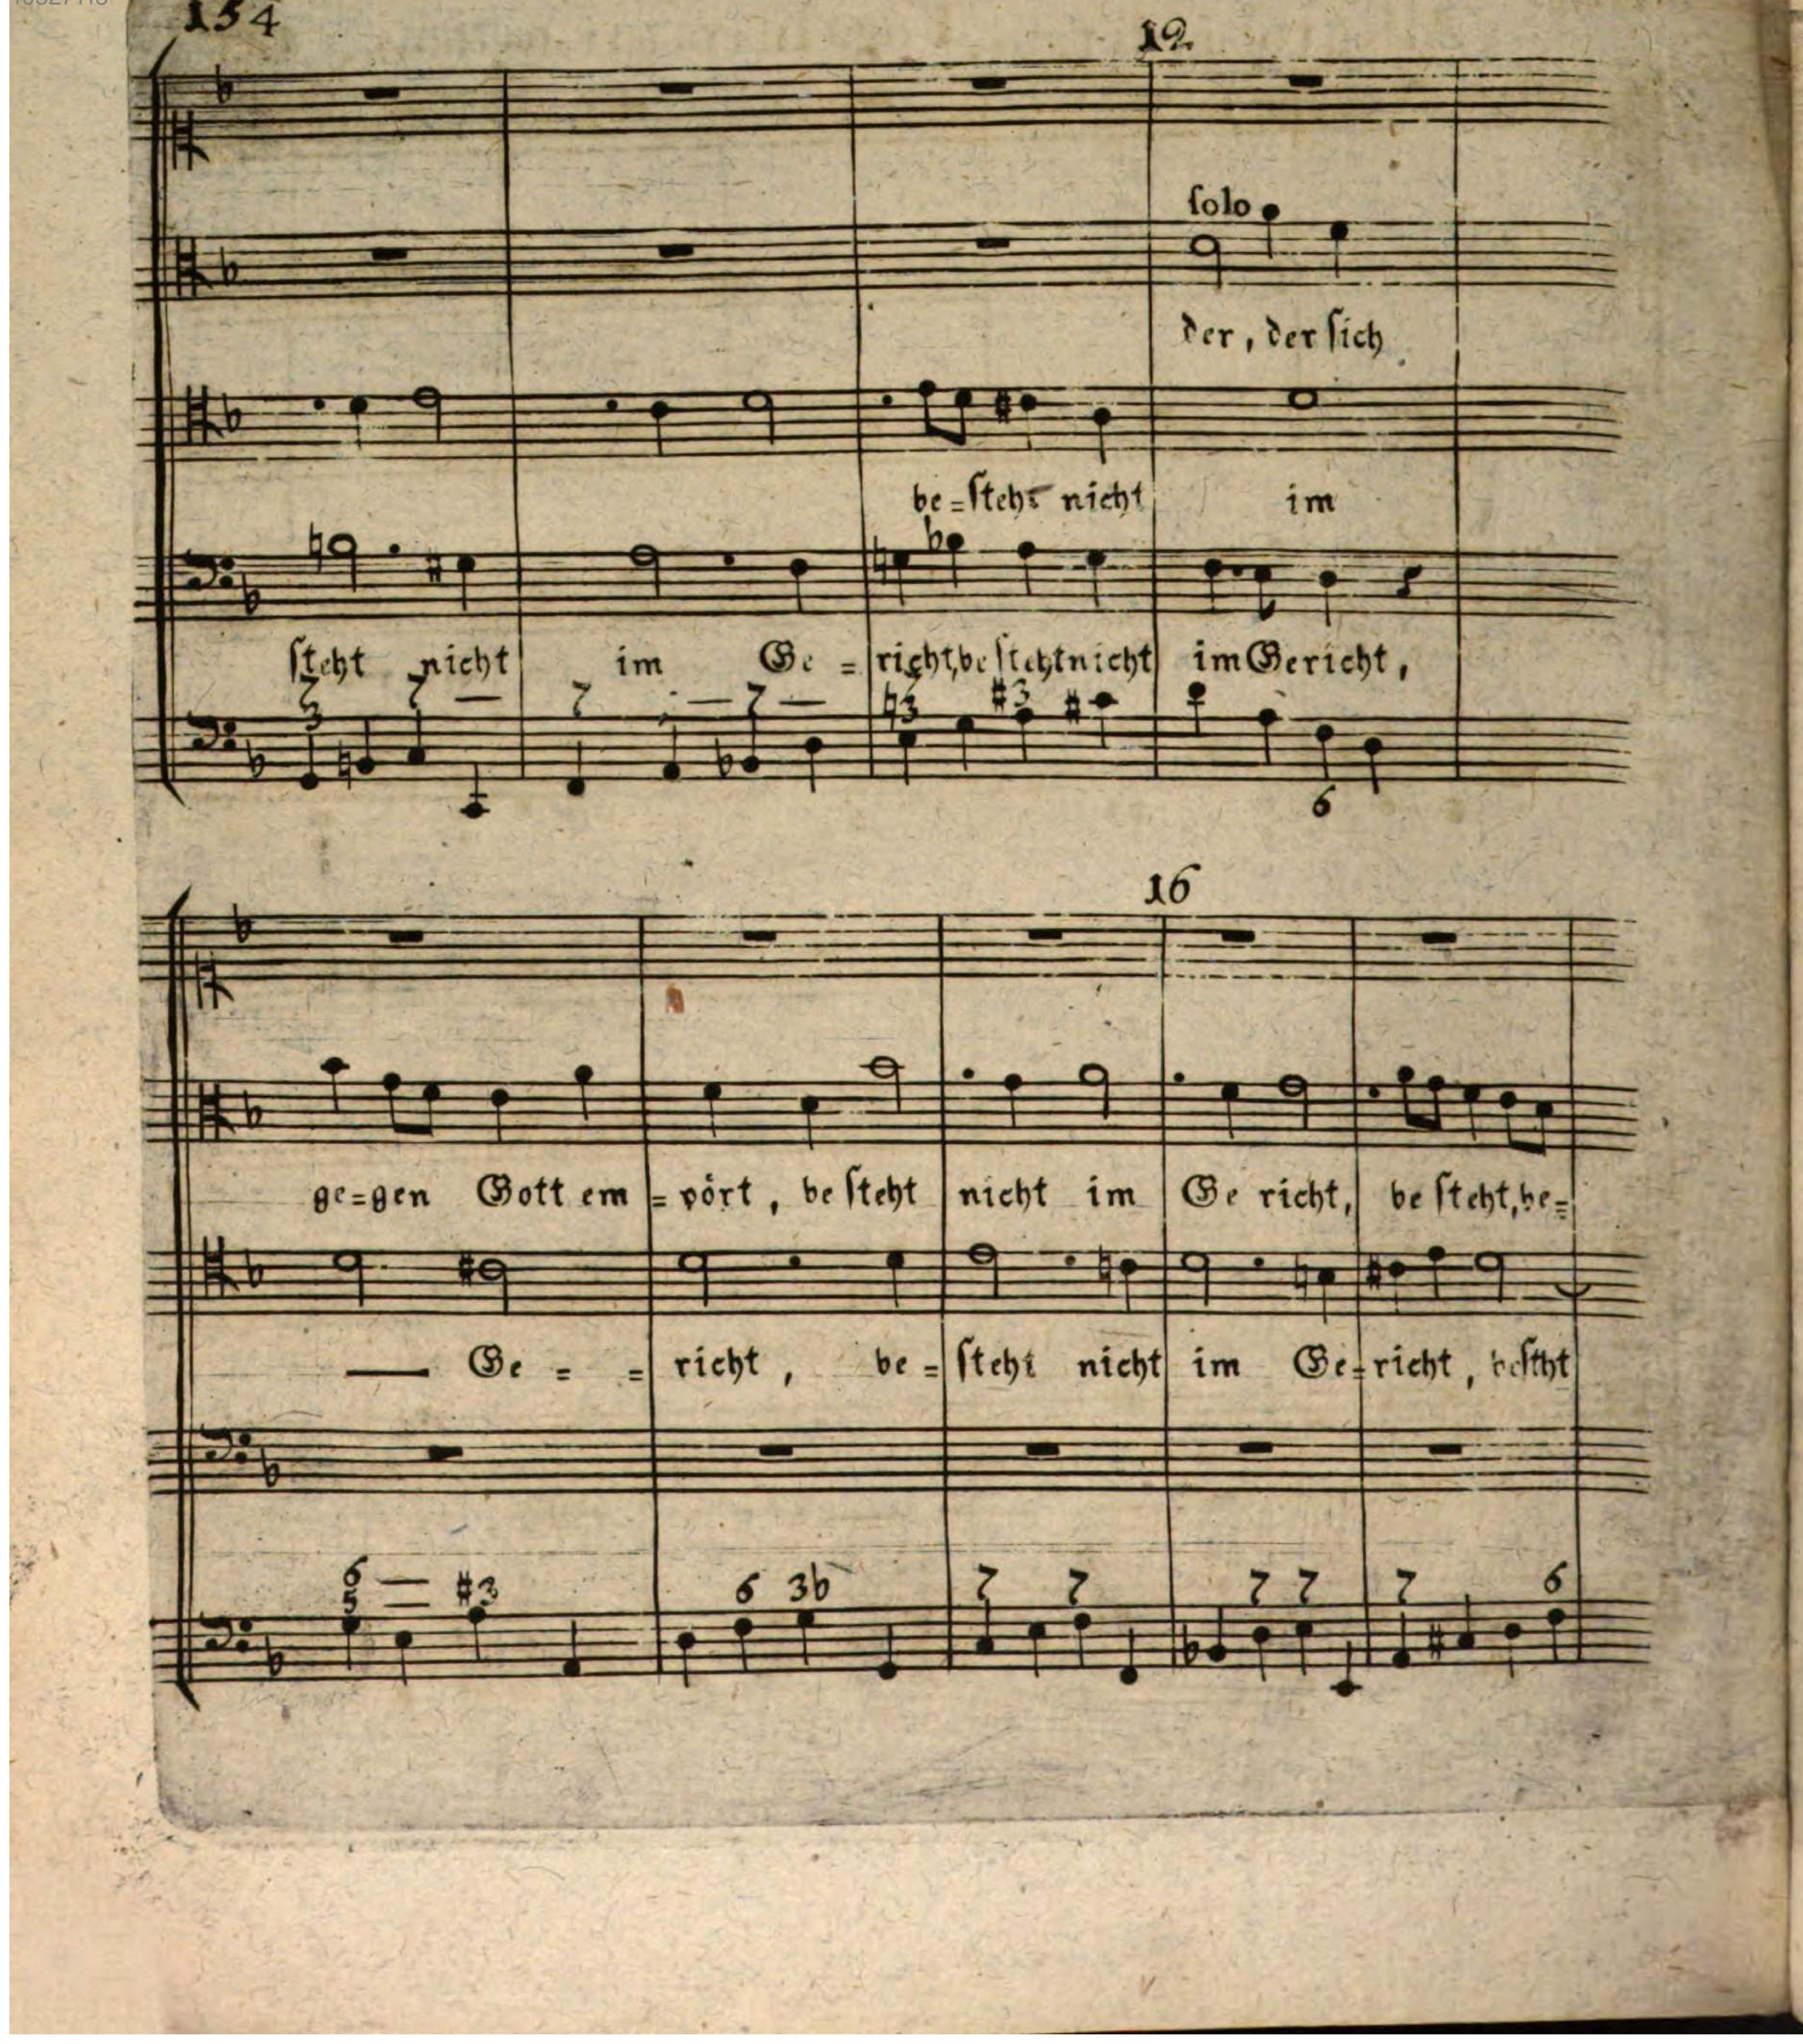 154
12
solo
der, der sich
be=steht nicht im
steht nicht im Ge = richt, be steht nicht im Gericht,
7 — 7 — 7 — ♮3 #3
6
16
ge=gen Gott em = pört, be steht nicht im Ge richt, be steht, be=
— Ge = = richt, be = steht nicht im Ge=richt, besteht
6 — #3 6 3b 7 7 7 7 7 6
5 —